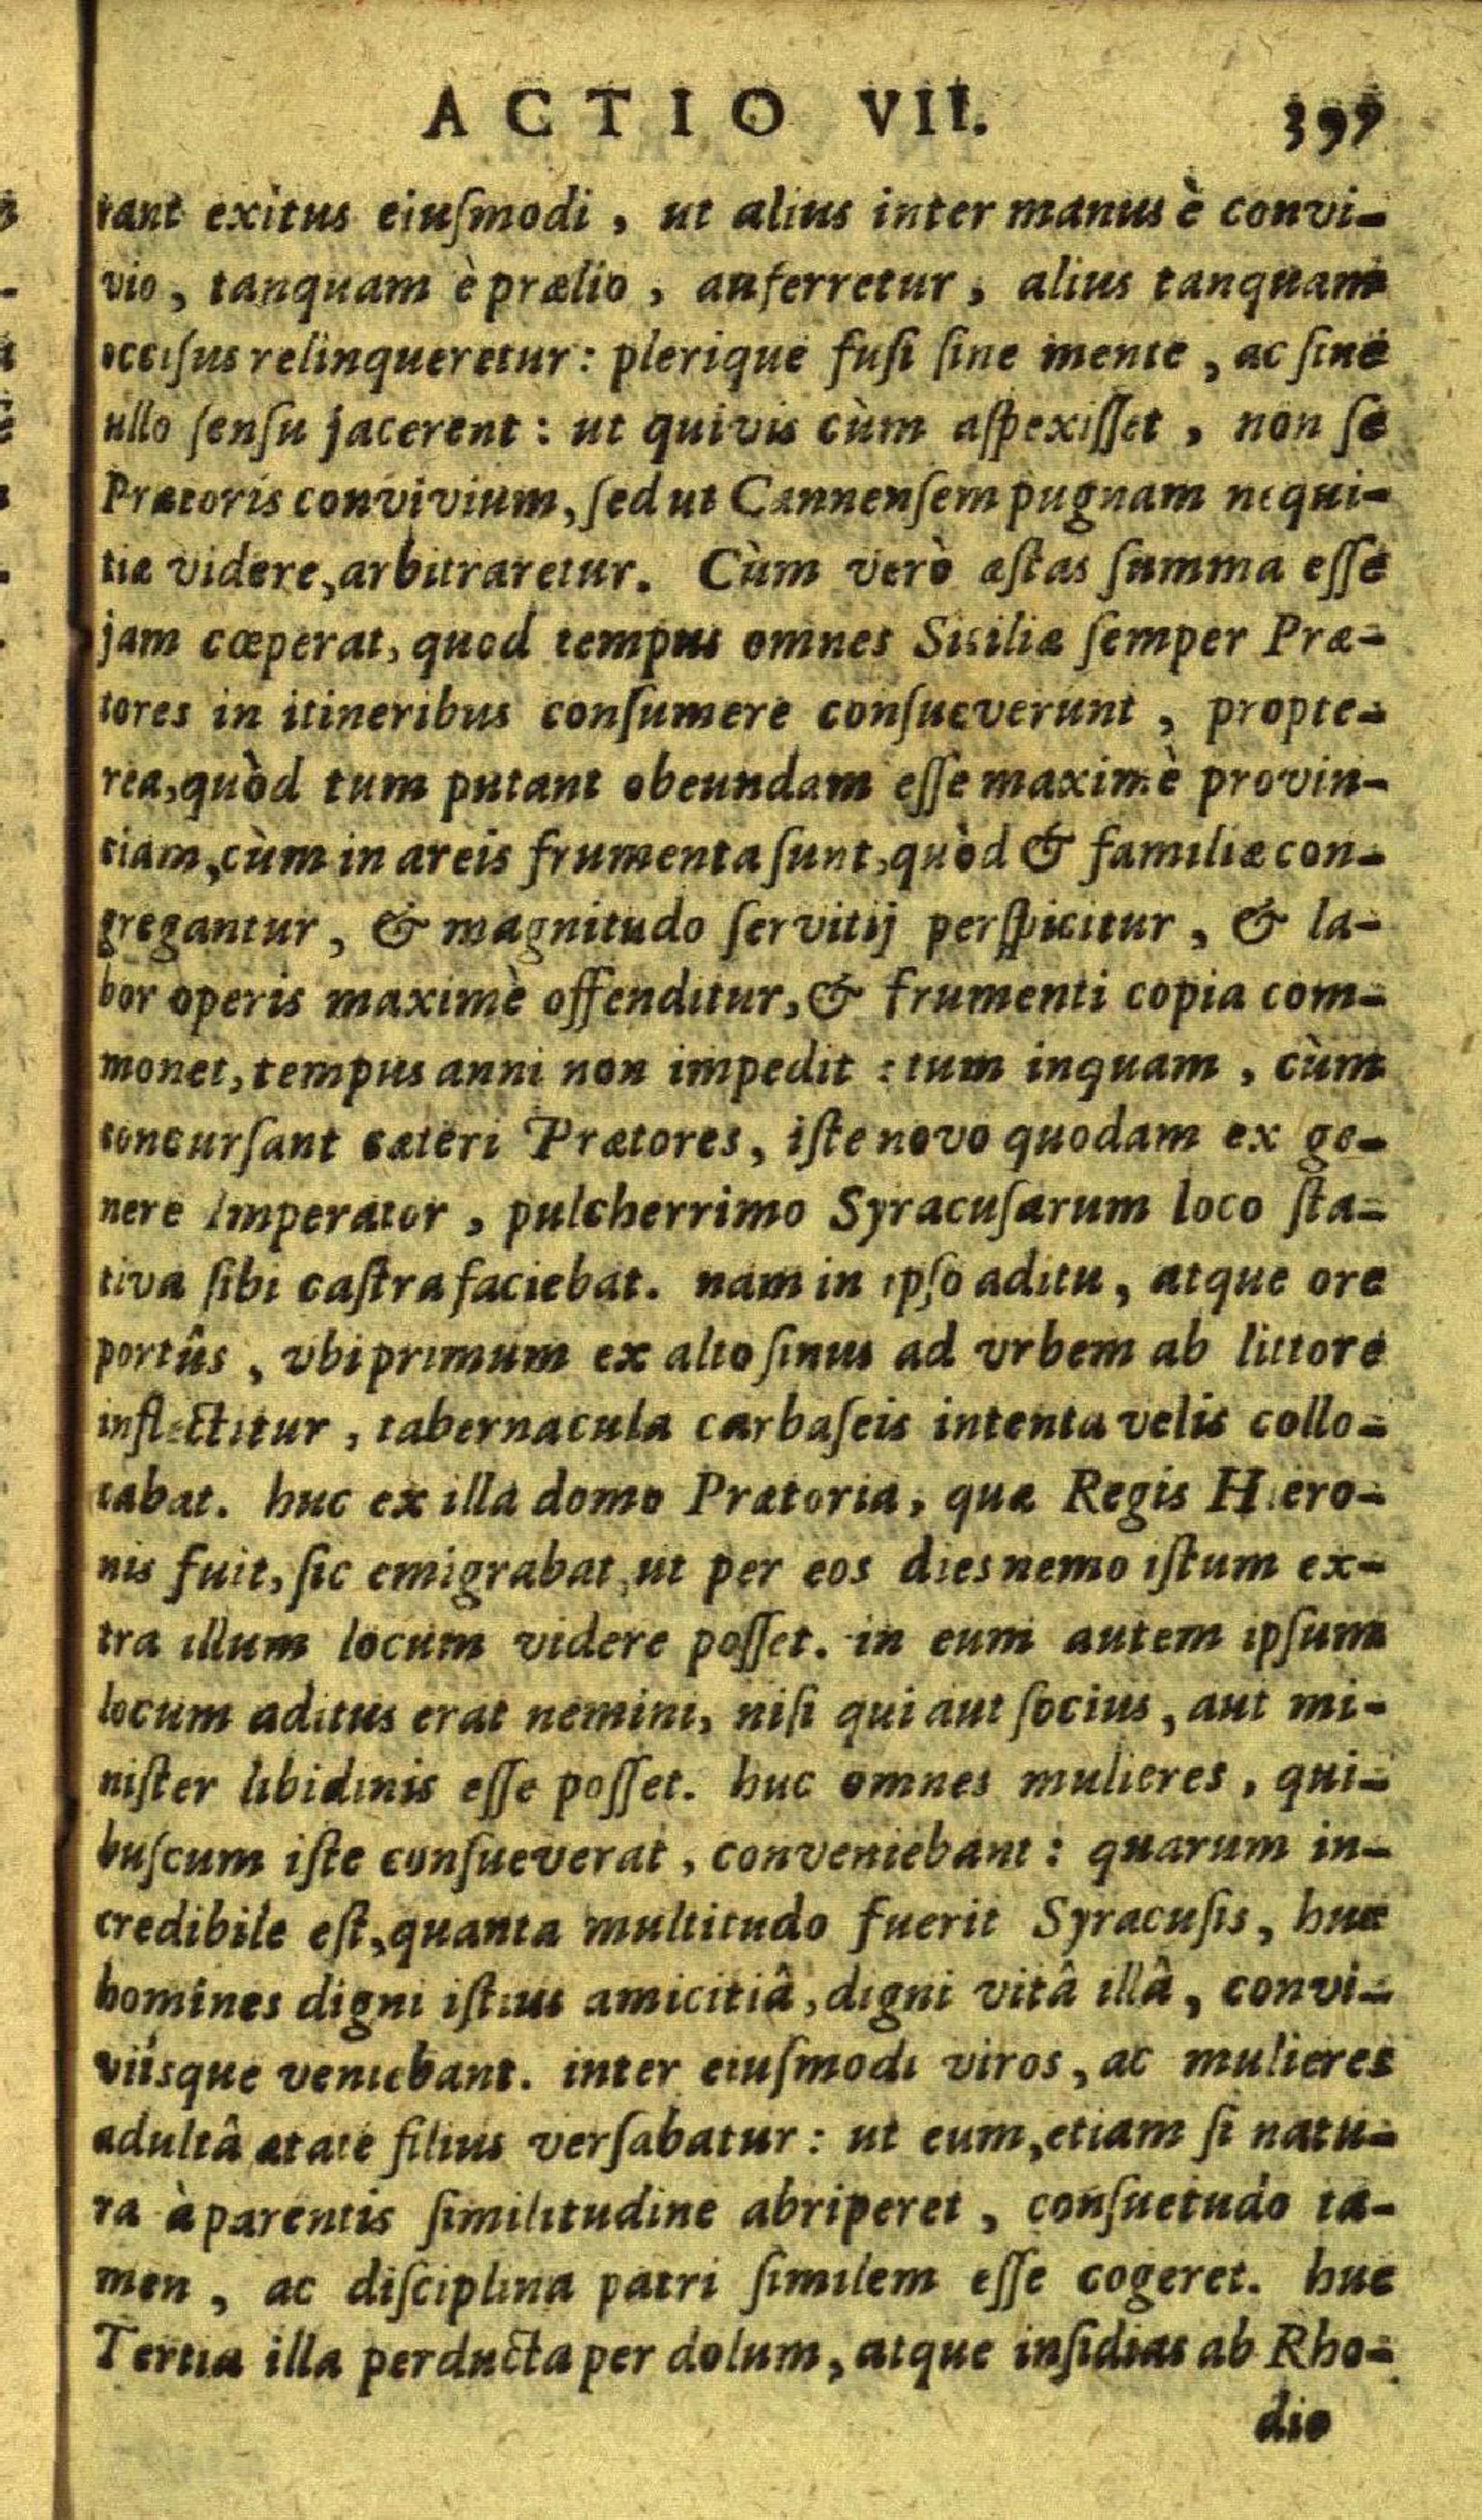 ACTIO VII. 397
rant exitus eiuſmodi, ut alius inter manus è convi-
vio, tanquam è prælio, auferretur, alius tanquam
occiſus relinqueretur: plerique fuſi ſine mente, ac ſine
ullo ſenſu jacerent: ut quivis cùm aſpexiſſet, non ſe
Prætoris convivium, ſed ut Cannenſem pugnam nequi-
tiæ videre, arbitraretur. Cùm verò æſtas ſumma eſſe
jam cœperat, quod tempus omnes Siciliæ ſemper Præ-
tores in itineribus conſumere conſueverunt, propte-
rea, quòd tum putant obeundam eſſe maximè provin-
ciam, cùm in areis frumenta ſunt, quòd & familiæ con-
gregantur, & magnitudo ſervitij perſpicitur, & la-
bor operis maximè offenditur, & frumenti copia com-
monet, tempus anni non impedit: tum inquam, cùm
concurſant cæteri Prætores, iſte novo quodam ex ge-
nere Imperator, pulcherrimo Syracuſarum loco ſta-
tiva ſibi caſtra faciebat. nam in ipſo aditu, atque ore
portûs, vbi primum ex alto ſinus ad vrbem ab littore
inflectitur, tabernacula carbaſeis intenta velis collo-
cabat. huc ex illa domo Prætoria, quæ Regis Hiero-
nis fuit, ſic emigrabat, ut per eos dies nemo iſtum ex-
tra illum locum videre poſſet. in eum autem ipſum
locum aditus erat nemini, niſi qui aut ſocius, aut mi-
niſter libidinis eſſe poſſet. huc omnes mulieres, qui-
buſcum iſte conſueverat, conveniebant: quarum in-
credibile eſt, quanta multitudo fuerit Syracuſis, huc
homines digni iſtius amicitiâ, digni vitâ illâ, convi-
viisque veniebant. inter eiuſmodi viros, ac mulieres
adultâ ætate filius verſabatur: ut eum, etiam ſi natu-
ra à parentis ſimilitudine abriperet, conſuetudo ta-
men, ac diſciplina patri ſimilem eſſe cogeret. huc
Tertia illa perducta per dolum, atque inſidias ab Rho-
dio